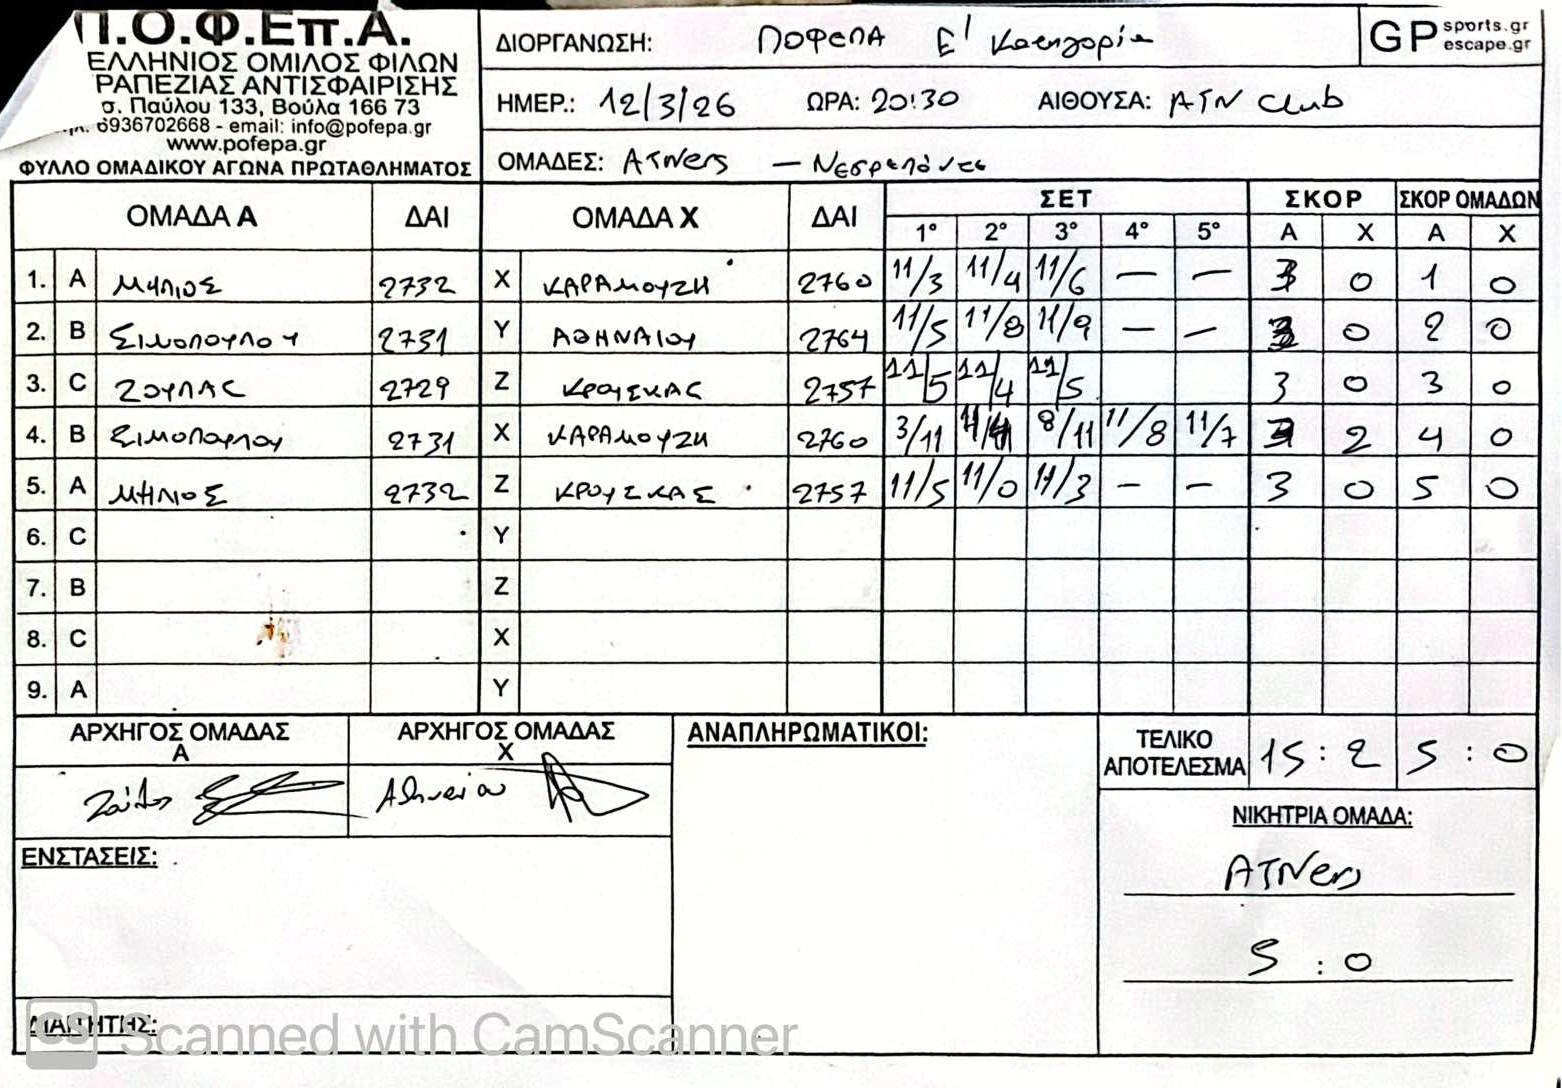 Π.Ο.Φ.Επ.Α.
ΕΛΛΗΝΙΟΣ ΟΜΙΛΟΣ ΦΙΛΩΝ
ΡΑΠΕΖΙΑΣ ΑΝΤΙΣΦΑΙΡΙΣΗΣ
σ. Παύλου 133, Βούλα 166 73
6936702668 - email: info@pofepa.gr
www.pofepa.gr
ΦΥΛΛΟ ΟΜΑΔΙΚΟΥ ΑΓΩΝΑ ΠΡΩΤΑΘΛΗΜΑΤΟΣ
ΔΙΟΡΓΑΝΩΣΗ: ΠΟΦΕΠΑ Ε' Κατηγορία
GP sports.gr
escape.gr
ΗΜΕΡ.: 12/3/26 ΩΡΑ: 20:30 ΑΙΘΟΥΣΑ: ATN Club
ΟΜΑΔΕΣ: ATNers –
ΟΜΑΔΑ Α ΔΑΙ ΟΜΑΔΑ Χ ΔΑΙ ΣΕΤ ΣΚΟΡ ΣΚΟΡ ΟΜΑΔΩΝ
1° 2° 3° 4° 5° Α Χ Α Χ
1. A ΜΗΛΙΟΣ 2732 X ΚΑΡΑΜΟΥΖΗ 2760 11/3 11/4 11/6 — — 3 0 1 0
2. B ΣΙΜΟΠΟΥΛΟΥ 2731 Y ΑΘΗΝΑΙΟΥ 2764 11/5 11/8 11/9 — — 3 0 2 0
3. C ΖΟΥΛΑΣ 2729 Z ΚΡΟΥΣΚΑΣ 2757 11/5 11/4 11/5 3 0 3 0
4. B ΣΙΜΟΠΟΥΛΟΥ 2731 X ΚΑΡΑΜΟΥΖΗ 2760 3/11 8/11 11/8 11/7 3 2 4 0
5. A ΜΗΛΙΟΣ 2732 Z ΚΡΟΥΣΚΑΣ 2757 11/5 11/0 11/3 – – 3 0 5 0
6. C Y
7. B Z
8. C X
9. A Y
ΑΡΧΗΓΟΣ ΟΜΑΔΑΣ Α
ΑΡΧΗΓΟΣ ΟΜΑΔΑΣ Χ
Ζούλας
Αθηναίου
ΑΝΑΠΛΗΡΩΜΑΤΙΚΟΙ:
ΤΕΛΙΚΟ ΑΠΟΤΕΛΕΣΜΑ 15 : 2 5 : 0
ΝΙΚΗΤΡΙΑ ΟΜΑΔΑ:
ATNers
5 : 0
ΕΝΣΤΑΣΕΙΣ:
ΔΙΑΙΤΗΤΗΣ:
CS Scanned with CamScanner